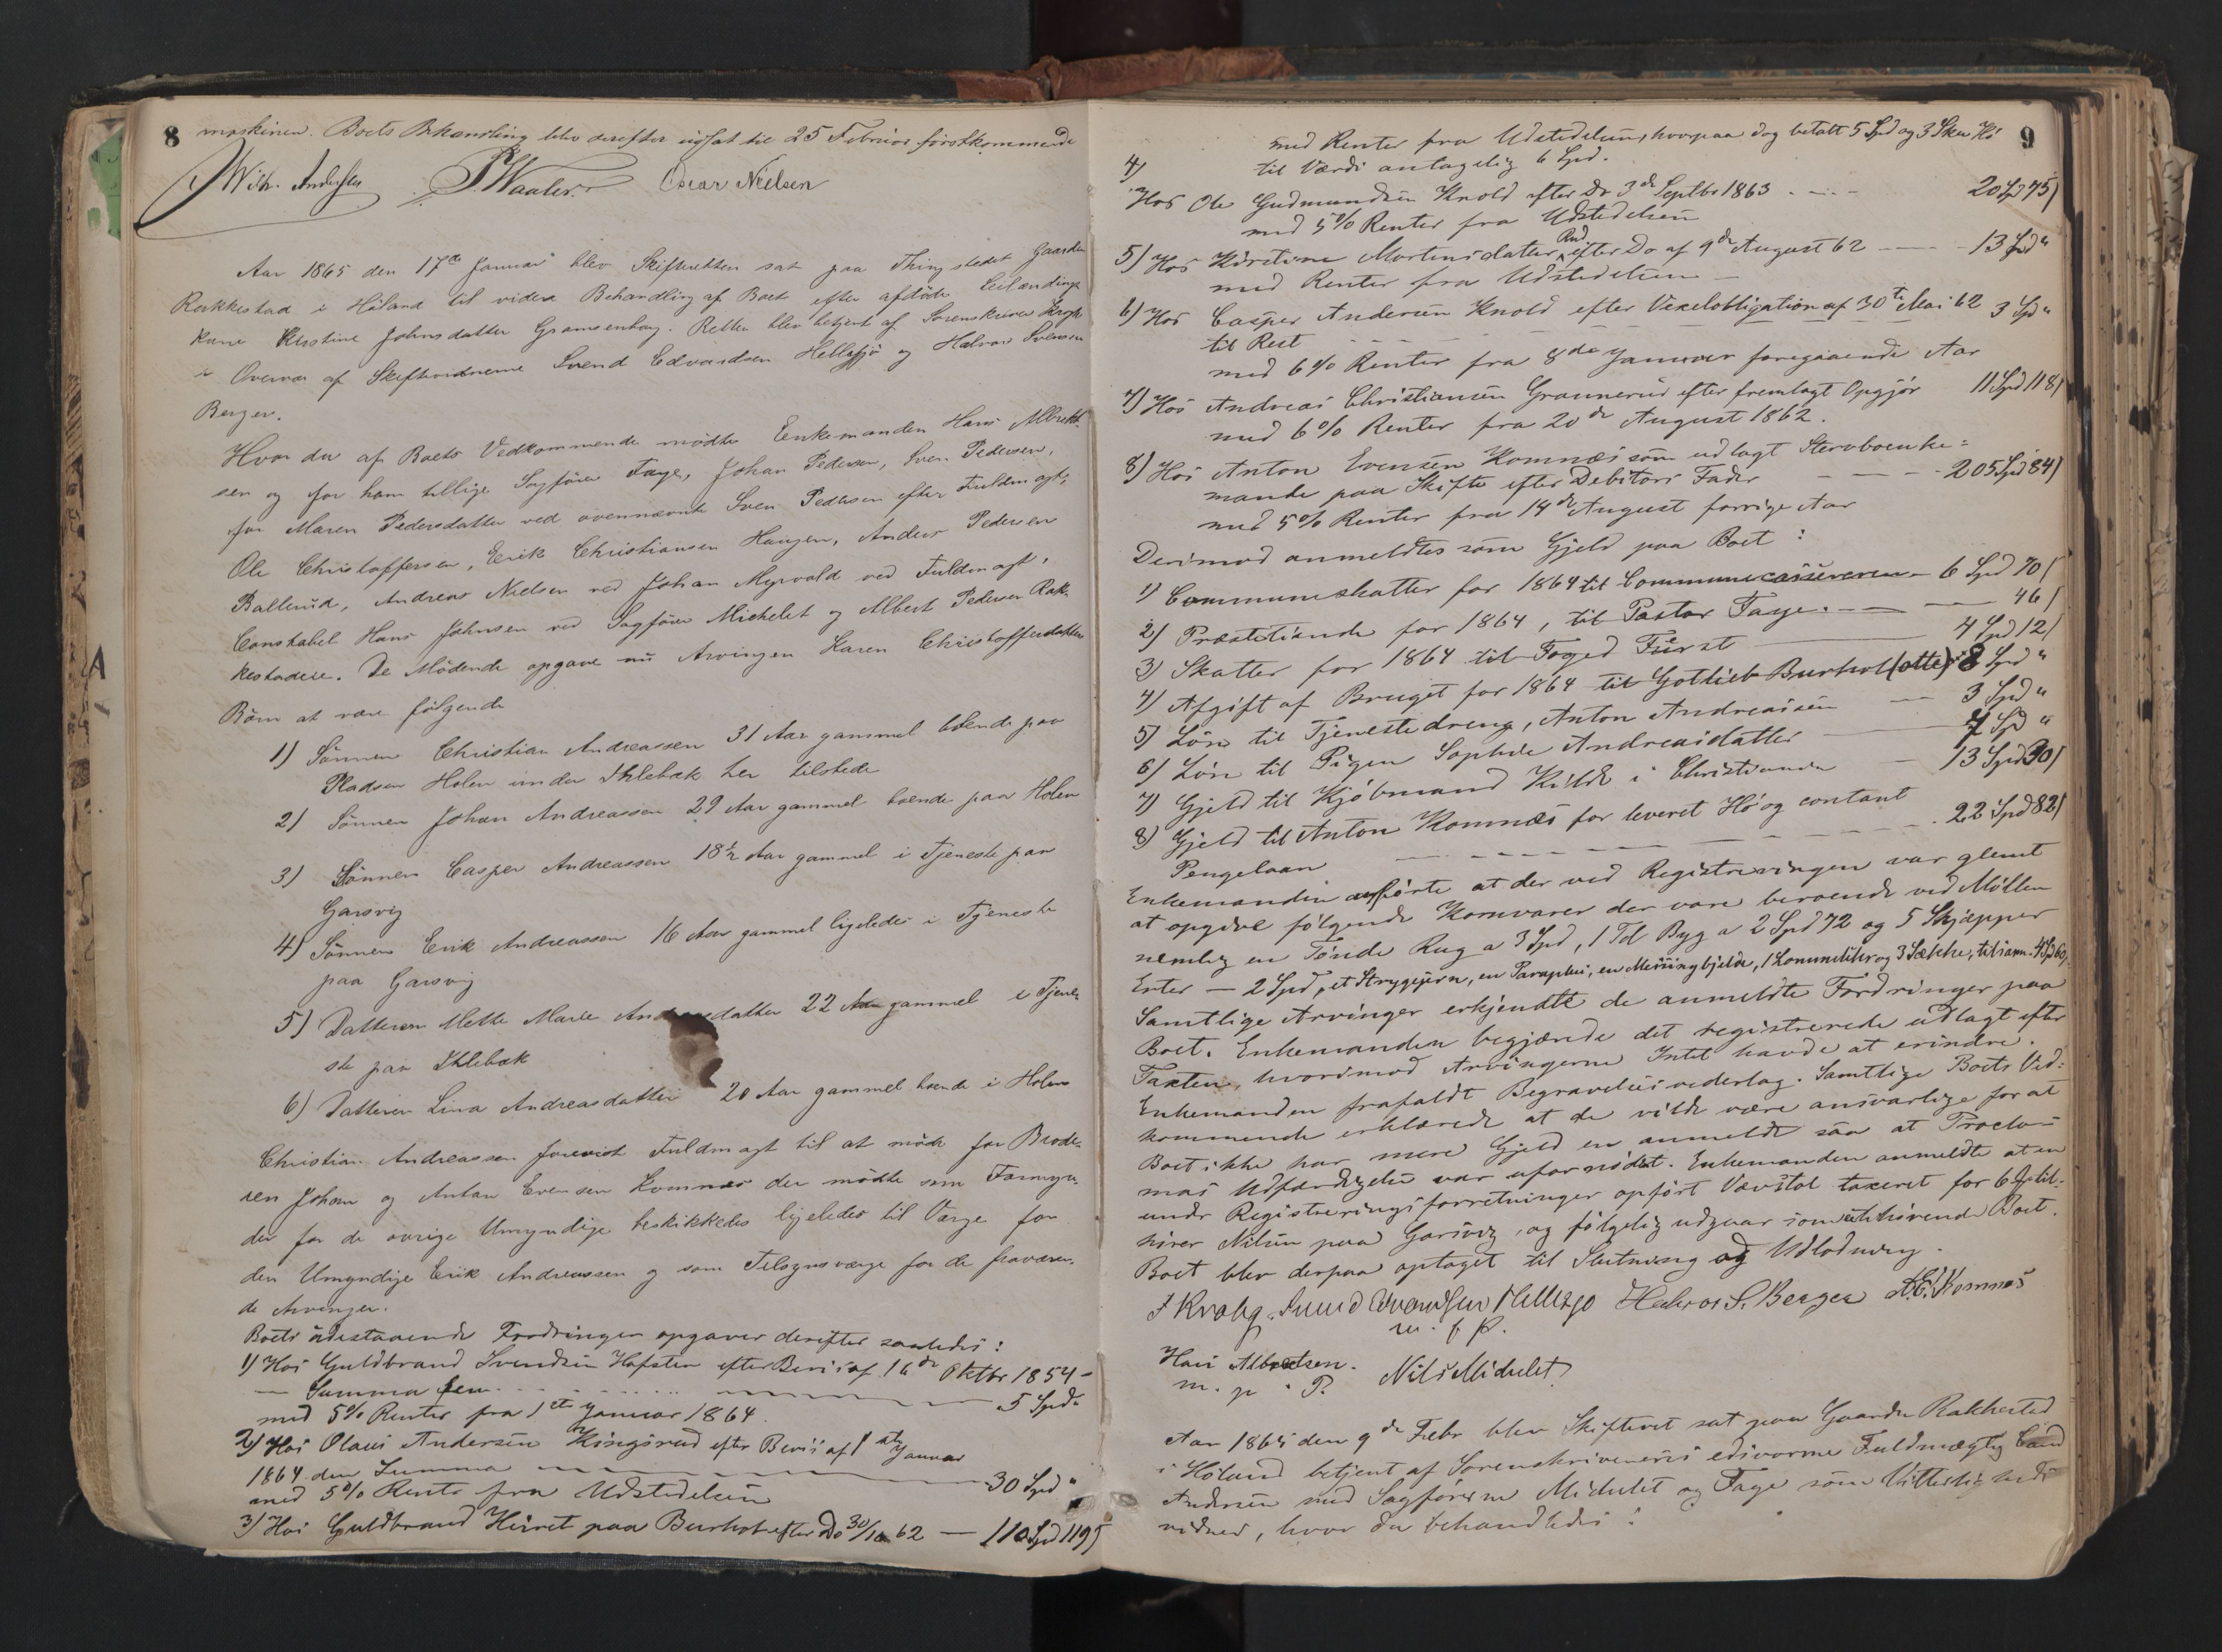 8
maskinen. Boets Behandling blev derefter udsat til 25 Februar førstkommende
Wilh. Andersen P Waaler Oscar Nielsen
Aar 1865 den 17de Januar blev Skifteretten sat paa Thingstedet Gaarden
Rakkestad i Höland til videre Behandling af Boet efter afdöde Leilændings
kone Kirstine Johnsdatter Gramsenborg. Retten blev betjent af Sorenskriver Krogh
i Overvær af Skiftevidnerne Svend Edvardsen Hellesjö og Halvor Svensen
Berger.
Hvor da af Boets Vedkommende mödte Enkemanden Hans Albrekt-
sen og for ham tillige Sagförer Faye, Johan Pedersen, Sven Pedersen,
for Maren Pedersdatter ved ovennævnte Sven Pedersen efter Fuldmagt,
Ole Christoffersen, Erik Christiansen Haugen, Anders Pedersen
Ballerud, Andreas Nielsen ved Johan Myrvold ved Fuldmagt,
Constabel Hans Johnsen ved Sagförer Michelet og Albert Pedersen Rak-
kestadeie. De Mödende opgave nu Arvingen Karen Christoffersdatters
Börn at være fölgende
1) Sönnen Christian Andreassen 31 Aar gammel boende paa
Pladsen Holen under Ihlebæk her tilstede
2) Sönnen Johan Andreassen 29 Aar gammel boende paa Holen
3) Sönnen Casper Andreassen 18½ Aar gammel i Tjeneste paa
Garsvig
4) Sönnen Erik Andreassen 16 Aar gammel ligeledes i Tjeneste
paa Garsvig
5) Datteren Mette Marie Andreasdatter 22 Aar gammel i Tjene-
ste paa Ihlebæk
6) Datteren Lina Andreasdatter 20 Aar gammel boende i Holen
Christian Andreassen foreviste Fuldmagt til at möde for Brode-
ren Johan og Anton Evensen Komnæs der mödte som Formyn-
der for de övrige Umyndige beskikkedes ligeledes til Værge for
den Umyndige Erik Andreassen og som Tilsynsværge for de fraværen-
de Arvinger.
Boets udestaaende Fordringer opgaves derefter saaledes:
1) Hos Guldbrand Svendsen Hafsten efter Bevis af 16de Oktbr 1854 -
— Summa fem 5 Spd "
med 5% Renter fra 1ste Januar 1864.
2) Hos Olaus Andersen Kingsrud efter Beviis af 1ste Januar
1864 den Summa 30 Spd "
med 5% Rente fra Udstedelsen
3) Hos Guldbrand Hirret paa Burhol efter Do 30/10 62 — 110 Spd 119 ʃ
9
med Renter fra Udstedelsen, hvorpaa dog betalt 5 Spd og 3 Sku Hö
til Værdi antagelig 6 Spd.
4) Hos Ole Gudmundsen Knold efter Do 3de Septbr 1863 20 Spd 75 ʃ
med 5% Renter fra Udstedelsen
5) Hos Kirstine Mortensdatter Rud efter Do af 9de August 62 13 Spd "
med Renter fra Udstedelsen —
6) Hos Casper Andersen Knold efter Vexelobligation af 30te Mai 62 3 Spd "
til Rest
med 6% Renter fra 8de Januar foregaaende Aar
7) Hos Andreas Christiansen Grannerud efter fremlagt Opgjör 11 Spd 118 ʃ
med 6% Renter fra 20de August 1862.
8) Hos Anton Evensen Komnæs som udlagt Stervboenke=
mande paa Skifte efter Debitors Fader 205 Spd 84 ʃ
med 5% Renter fra 14de August forrige Aar
Derimod anmeldtes som Gjeld paa Boet:
1) Communeskatter for 1864 til Communecassereren 6 Spd 70 ʃ
2) Præstetiende for 1864, til Pastor Faye. 46 ʃ
3) Skatter for 1864 til Foged Fürst 4 Spd 12 ʃ
4) Afgift af Bruget for 1864 til Gotlieb Burhol (otte) 8 Spd "
5) Lön til Tjenestedreng, Anton Andreassen 3 Spd "
6) Lön til Pigen Sophie Andreasdatter 7 Spd "
7) Gjeld til Kjöbmand Kilde i Christiania 13 Spd 30 ʃ
8) Gjeld til Anton Komnæs for leveret Hö og contant
Pengelaan 22 Spd 82 ʃ
Enkemanden anförte at der ved Registreringen var glemt
at opgive fölgende Kornvarer der vare beroende ved Möllen
nemlig en Tönde Rug a 3 Spd, 1 Td Byg a 2 Spd 72 og 5 Skjæpper
Erter — 2 Spd, et Strygejern, en Paraplui, en Messingbjelde, 1 Lommelikr og 3 Sække, tilsamn. 4 Spd 60,
Samtlige Arvinger erkjendte de anmeldte Fordringer paa
Boet. Enkemanden begjærede det registrerede udlagt efter
Taxten, hvorimod Arvingerne Intet havde at erindre.
Enkemanden frafaldt Begravelsesvederlag. Samtlige Boets Ved=
kommende erklærede at de vilde være ansvarlige for at
Boet ikke har mere Gjeld en anmeldt saa at Procla=
mas Udfærdigelse var ufornödent. Enkemanden anmeldte at en
under Registreringsforretningen opfört Vævstol taxeret for 60 ʃ til-
hörer Nilsen paa Garsvig, og fölgelig udgaar som uhensörende Boet.
Boet blev derpaa optaget til Slutning og Udlodning.
J Krohg. Svend Edvardsen Hellesjø Halvor S. Berger A. E. Komnæs
m. f. P.
Hans Albretsen. Nils Michelet
m. p. P.
Aar 1865 den 9de Febr blev Skifteret sat paa Gaarden Rakkestad
i Höland betjent af Sorenskriverens edsvorne Fuldmægtig Cand
Andersen med Sagförerne Michelet og Faye som Vitterligheds-
vidner, hvor da behandledes: